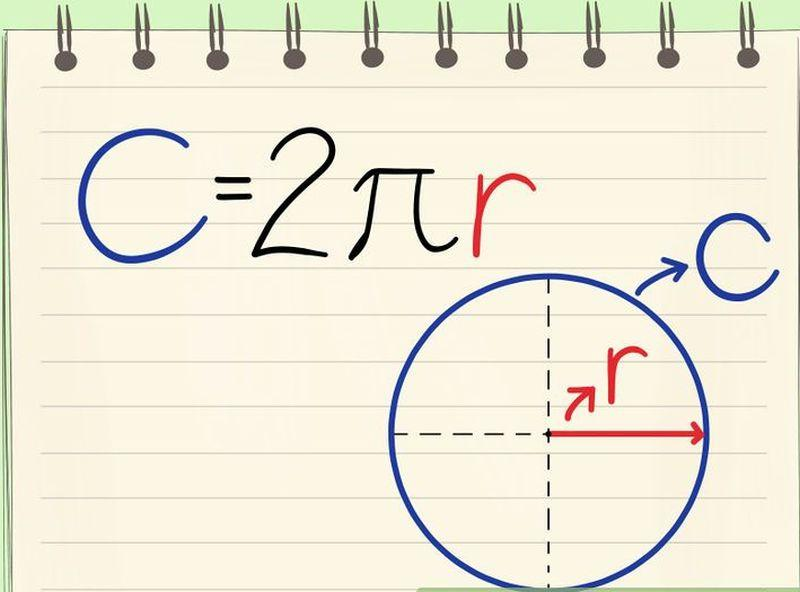 C=2πr
C
r